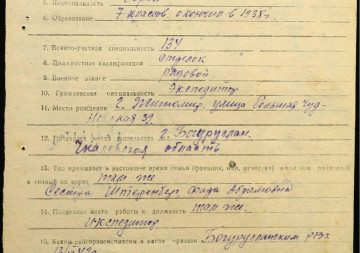 5. Национальность Еврей
6. Образование 7 классов окончил в 1938г.
7. Военно-учетная специальность 134
8. Должностная квалификация стрелок
9. Военное звание рядовой
10. Гражданская специальность Экспедитор
11. Место рождения г. Житомир, улица Большая Чуд-
новская 39
12. места жительства г. Бугуруслан
Чкаловская область
13. Где проживает в настоящее время семья (фамилия, имя, отчество)
и точный их адрес там же
Сестра Абрамовна
14. Последнее место работы и должность там же.
экспедитор
15. Каким и когда призван Бугурусланским РВК